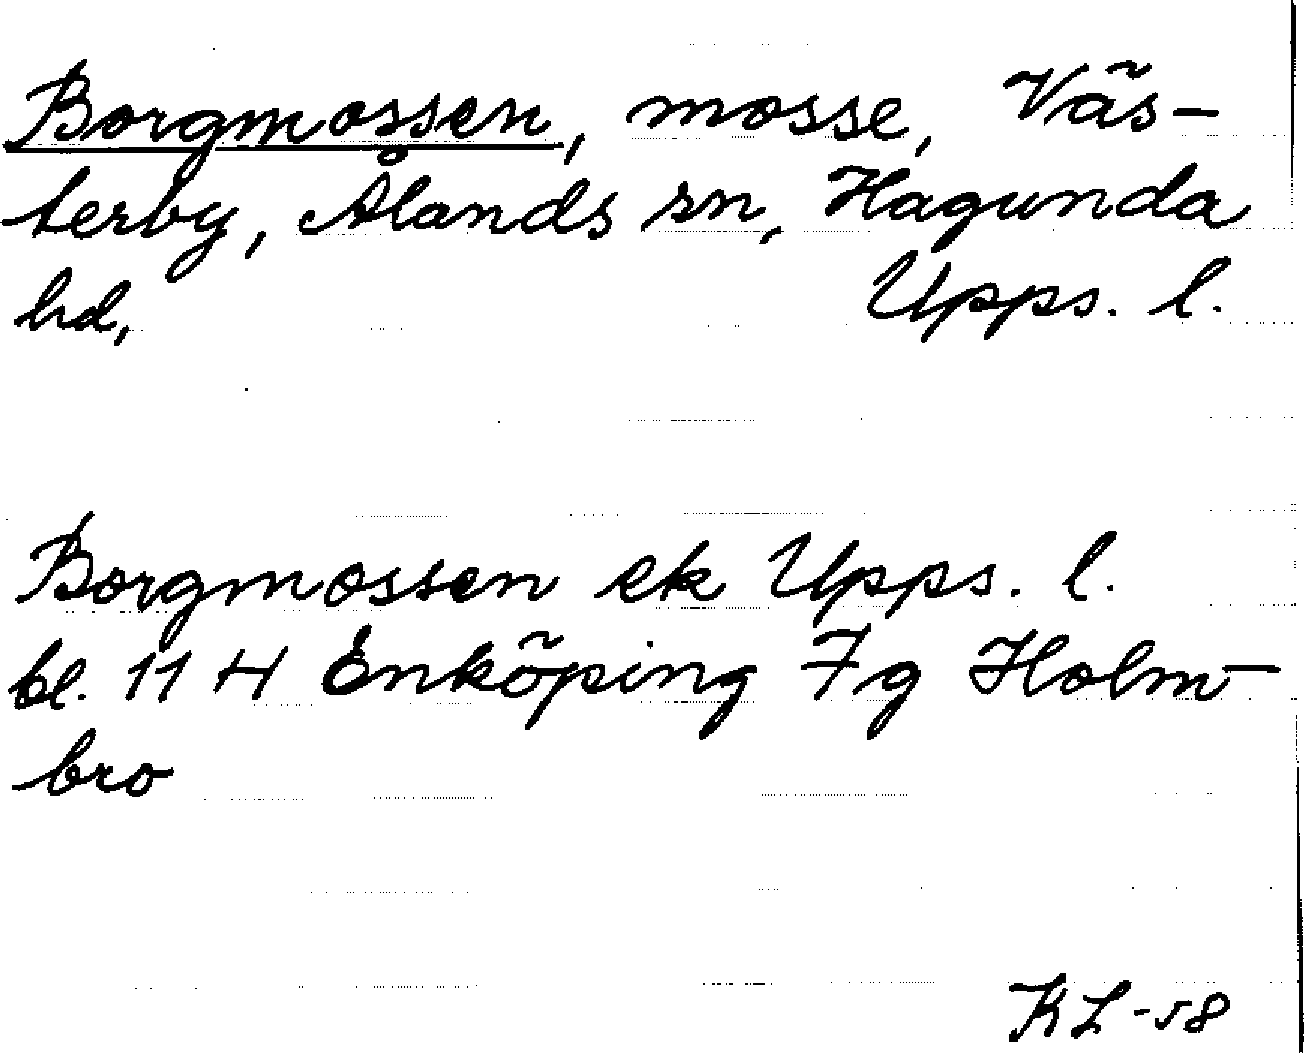 Borgmossen, mosse, Väs-
terby, Ålands sn, Hagunda
hd, Upps. l.
Borgmossen ek Upps. l.
bl. 11 H Enköping 7g Holm-
bro
KL-58